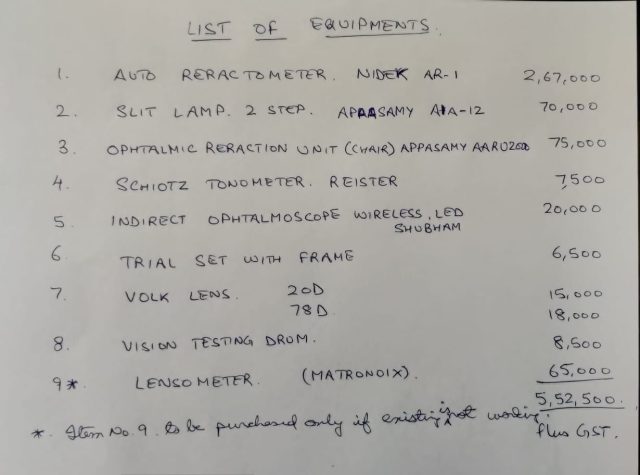 LIST OF EQUIPMENTS.
1. AUTO RERACTOMETER. NIDEK AR-1 2,67,000
2. SLIT LAMP. 2 STEP. APAASAMY AIA-12 70,000
3. OPHTALMIC RERACTION UNIT (CHAIR) APPASAMY AARU2000 75,000
4. SCHIOTZ TONOMETER. REISTER 7,500
5. INDIRECT OPHTALMOSCOPE WIRELESS, LED 20,000
SHUBHAM
6. TRIAL SET WITH FRAME 6,500
7. VOLK LENS. 20D 15,000
78D. 18,000
8. VISION TESTING DROM. 8,500
9*. LENSOMETER. (MATRONOIX). 65,000
5,52,500.
*. Item No. 9 to be purchased only if existing is not working.
plus GST.